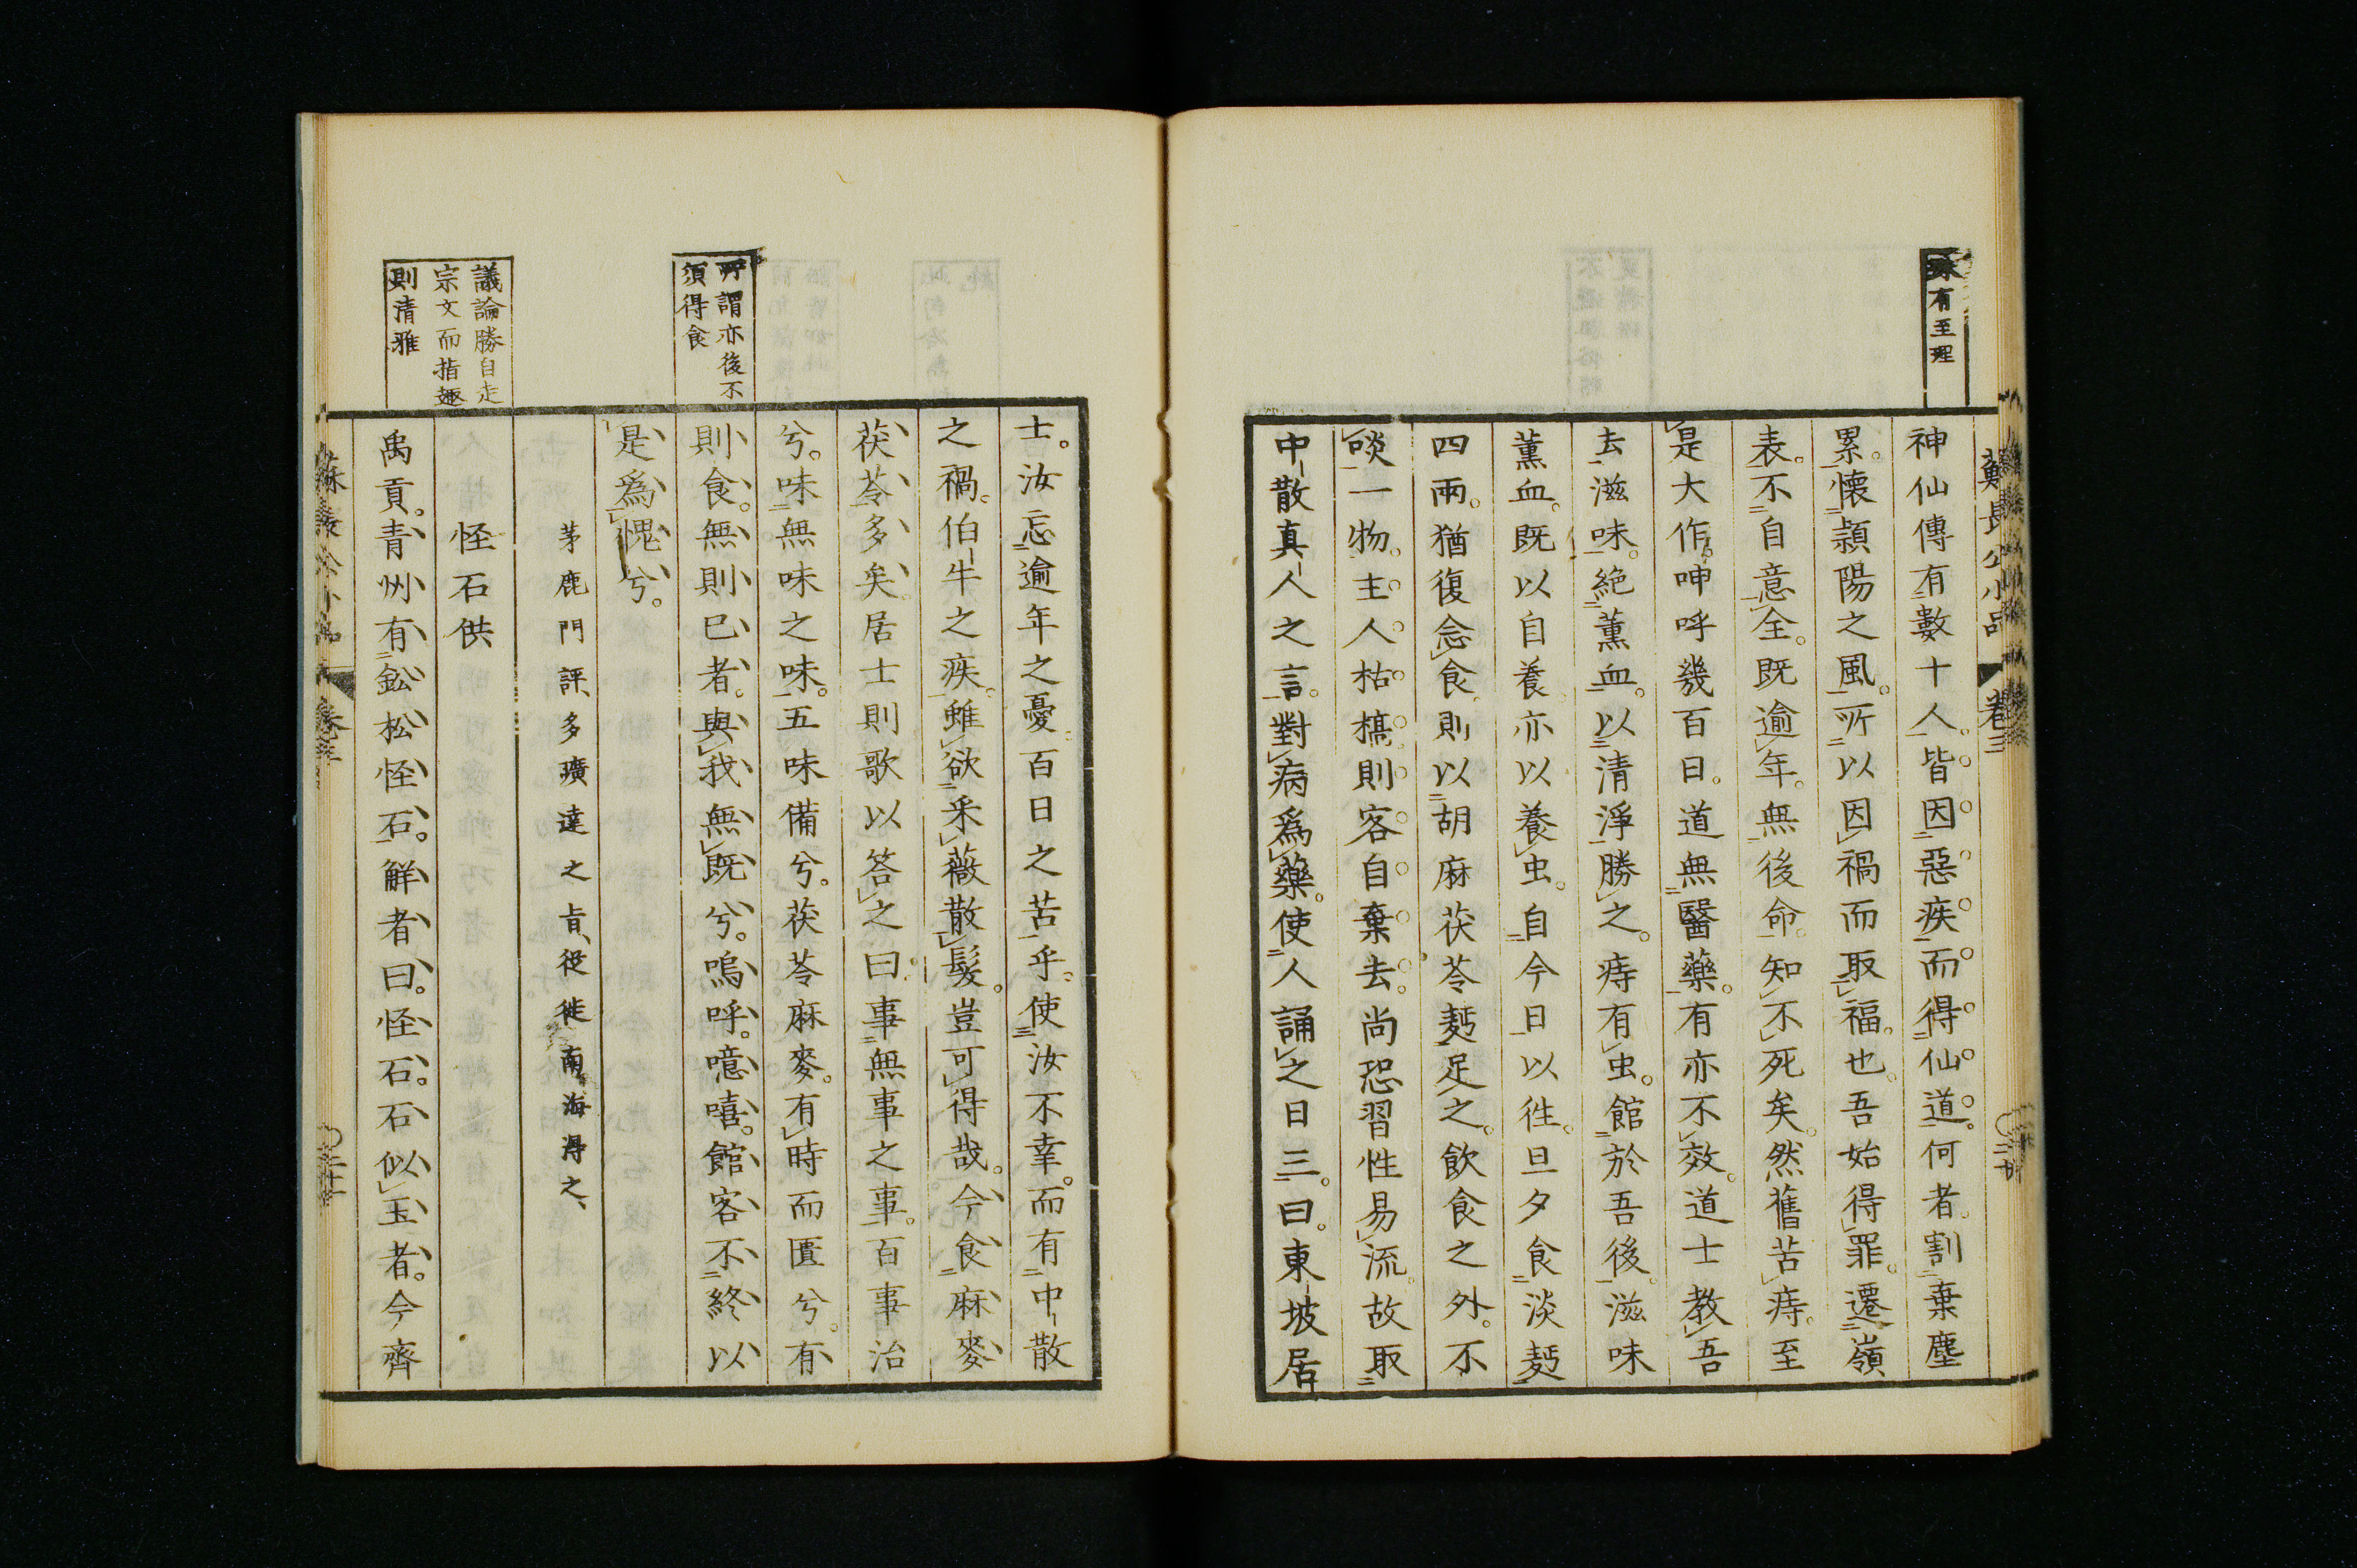 蘇長公小品
卷三
殊有至理
神仙傳有數十人。皆因惡疾而得仙道。何者割棄塵
累。懷頴陽之風。所以因禍而取福。也吾始得罪。遷嶺
表。不自意全。既逾年。無後命。知不死矣。然舊苦痔。至
是大作。呻呼幾百日。道無醫藥。有亦不效。道士教吾
去滋味。絶薰血。以清淨勝之。痔有虫。館於吾後。滋味
薰血。既以自養亦以養虫。自今日以徃。旦夕食淡麪
四兩。猶復念食則以胡麻茯苓麪足之。飲食之外。不
啖一物。主人枯槁則客自棄去。尚恐習性易流。故取
中散真人之言。對病爲藥。使人誦之日三。曰。東坡居
所謂亦後不
須得食
議論勝自走
宗文而指趣
則清雅
士。汝忘逾年之憂。百日之苦乎。使汝不幸。而有中散
之禍。伯牛之疾。雖欲采薇散髮。豈可得哉。今食麻麥
茯苓多矣。居士則歌以答之曰。事無事之事。百事治
兮。味無味之味。五味備兮。茯苓麻麥。有時而匱兮。有
則食。無則已者。與我無既兮。嗚呼。噫嘻。館客不終以
是爲愧兮。
茅鹿門評、多曠達之旨、從徙南海得之、
怪石供
禹貢。青州有鈆松怪石。解者曰。怪石。石似玉者。今齊